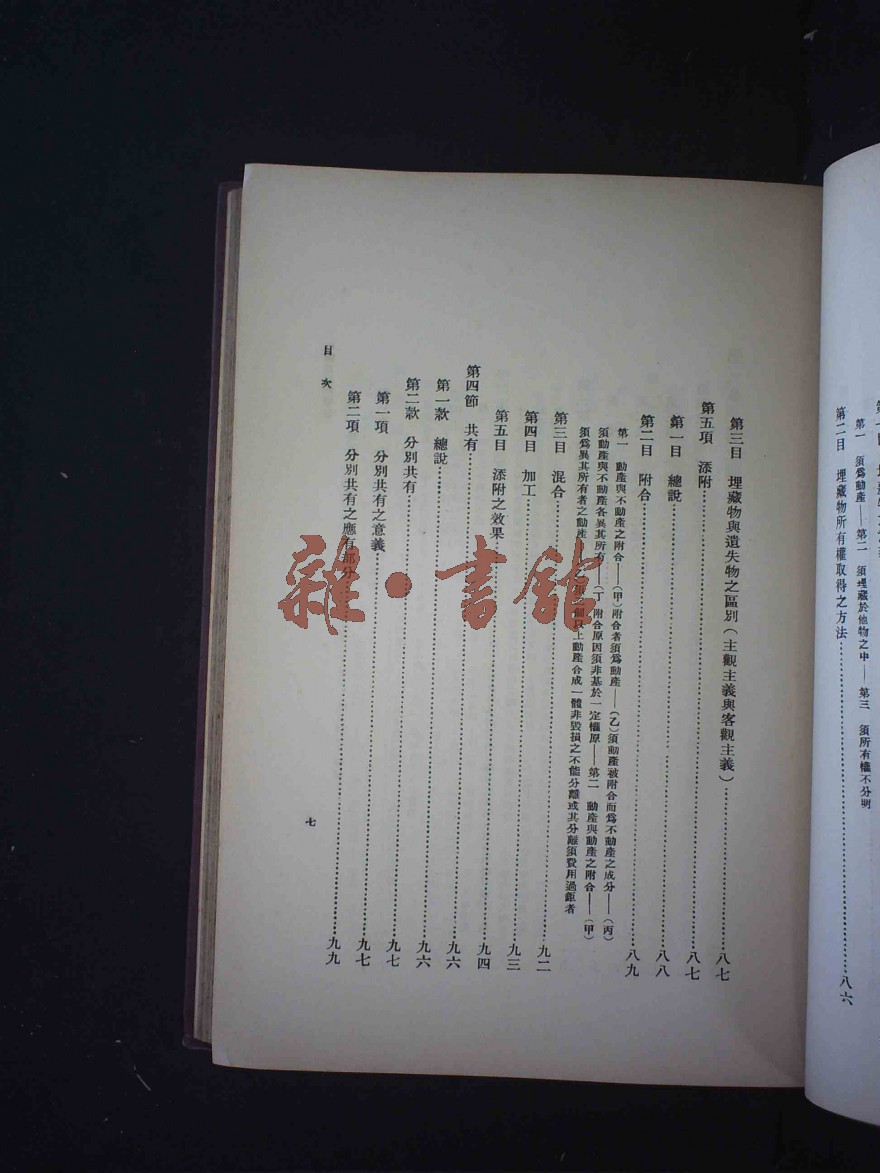 第一 須爲動產——第二 須埋藏於他物之中——第三 須所有權不分明
第二目 埋藏物所有權取得之方法……八六
第三目 埋藏物與遺失物之區別（主觀主義與客觀主義）……八七
第五項 添附……八七
第一目 總說……八八
第二目 附合……八九
第一 動產與不動產之附合——（甲）附合者須爲動產——（乙）須動產被附合而爲不動產之成分——（丙）
須動產與不動產各異其所有——（丁）附合原因須非基於一定權原——第二 動產與動產之附合——（甲）
須爲異其所有者之動產 個以上動產合成一體非毀損之不能分離或其分離須費用過鉅者
第三目 混合……九二
第四目 加工……九三
第五目 添附之效果……九四
第四節 共有……九六
第一款 總說……九六
第二款 分別共有……九七
第一項 分別共有之意義……九七
第二項 分別共有之應有部分……九九
目次
七
雜·書館